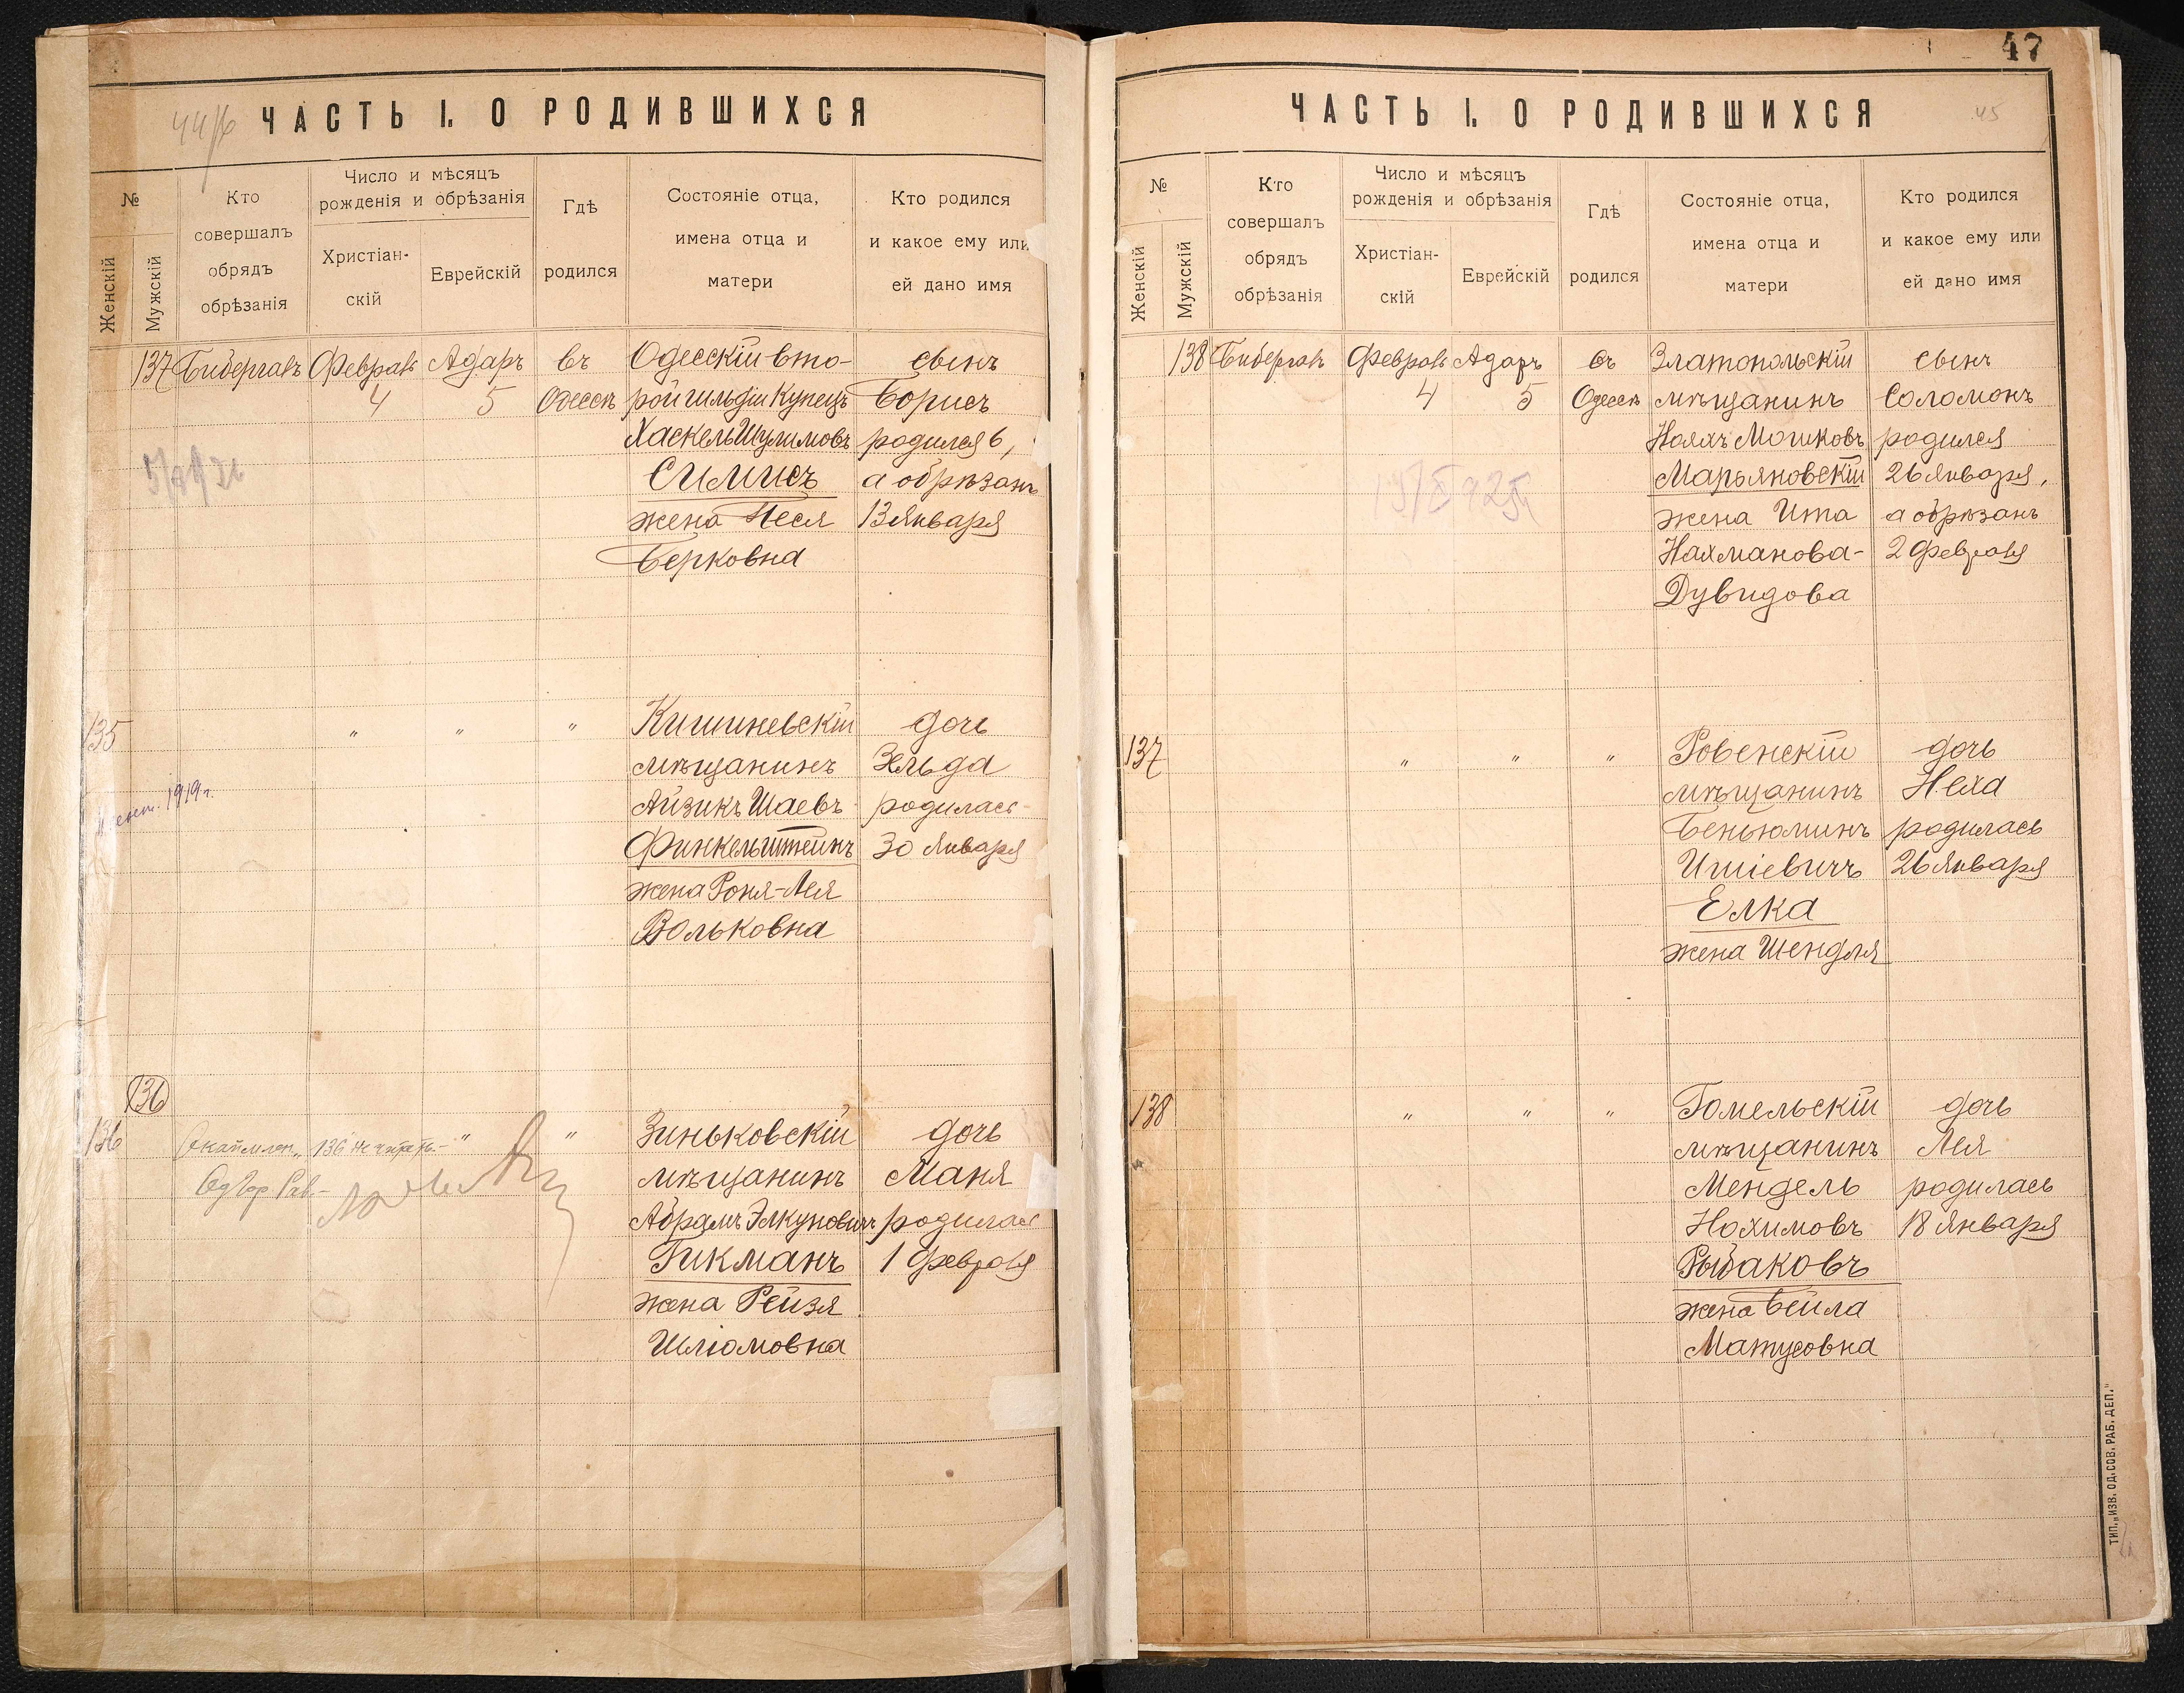 ЧАСТЬ I. О РОДИВШИХСЯ
№
Женскій
Мужскій
Кто
совершалъ
обрядъ
обрѣзанія
Число и мѣсяцъ
рожденія и обрѣзанія
Христіан-
скій
Еврейскій
Гдѣ
родился
Состояніе отца,
имена отца и
матери
Кто родился
и какое ему или
ей дано имя
137
Бибергалъ
Февраль
4
Адаръ
5
въ
Одессѣ
Одесскій вто-
рой гильдіи Купецъ
Хаскель Шулимовъ
Симисъ
жена Песя
Берковна
сынъ
Борисъ
родился 6,
а обрѣзанъ
13 Января
135
1919 г.
" " "
Кишиневскій
мѣщанинъ
Айзикъ Шаевъ
Финкельштейнъ
жена Роня-Лея
Вольковна
дочь
Зельда
родилась
30 Января
136
136
136 не читать.
" "
Зиньковскій
мѣщанинъ
Абрамъ Элкуновичъ
Гикманъ
жена Рейзя
Шлiомовна
дочь
Маня
родилась
1 Февраля
47
45
ЧАСТЬ I. О РОДИВШИХСЯ
№
Женскій
Мужскій
Кто
совершалъ
обрядъ
обрѣзанія
Число и мѣсяцъ
рожденія и обрѣзанія
Христіан-
скій
Еврейскій
Гдѣ
родился
Состояніе отца,
имена отца и
матери
Кто родился
и какое ему или
ей дано имя
138
Бибергалъ
Февраль
4
Адаръ
5
въ
Одессѣ
Златопольскій
мѣщанинъ
Нояхъ Мошковъ
Марьяновскій
жена Ита
Нахманова-
Дувидова
сынъ
Соломонъ
родился
26 Января,
а обрѣзанъ
2 Февраля
137
" " "
Ровенскій
мѣщанинъ
Беньюминъ
Ишіевичъ
Елка
жена Шендля
дочь
Неха
родилась
26 Января
138
" " "
Гомельскій
мѣщанинъ
Мендель
Нохимовъ
Рыбаковъ
жена Бейла
Матусовна
дочь
Лея
родилась
18 Января
ТИП. „ИЗВ. ОД. СОВ. РАБ. ДЕП."